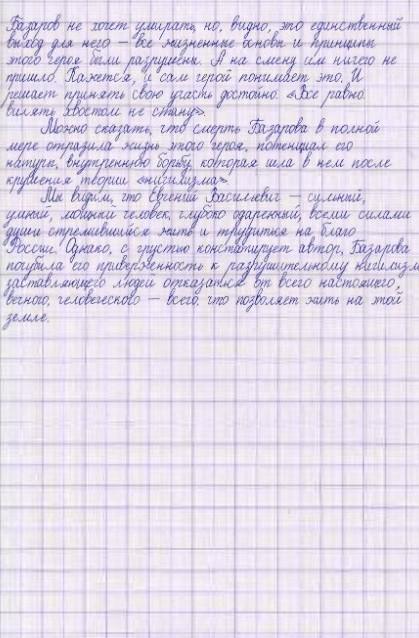 Базаров не хочет умирать, но, видно, это единственный
выход для него – все жизненные основы и принципы
этого героя были разрушены. А на смену им ничего не
пришло. Кажется, и сам герой понимает это. И
решает принять свою участь достойно. «Все равно
вилять хвостом не стану».
Можно сказать, что смерть Базарова в полной
мере отразила жизнь этого героя, потенциал его
натуры, внутреннюю борьбу, которая шла в нем после
крушения теории «нигилизма».
Мы видим, что Евгений Васильевич – сильный,
умный, человек, глубоко одаренный, всеми силами
души стремившийся жить и трудиться на благо
России. Однако, с грустью констатирует автор, Базарова
погубила его приверженность к разрушительному нигилизму
заставляющего людей отказаться от всего настоящего,
вечного, человеческого – всего, что позволяет жить на этой
земле.